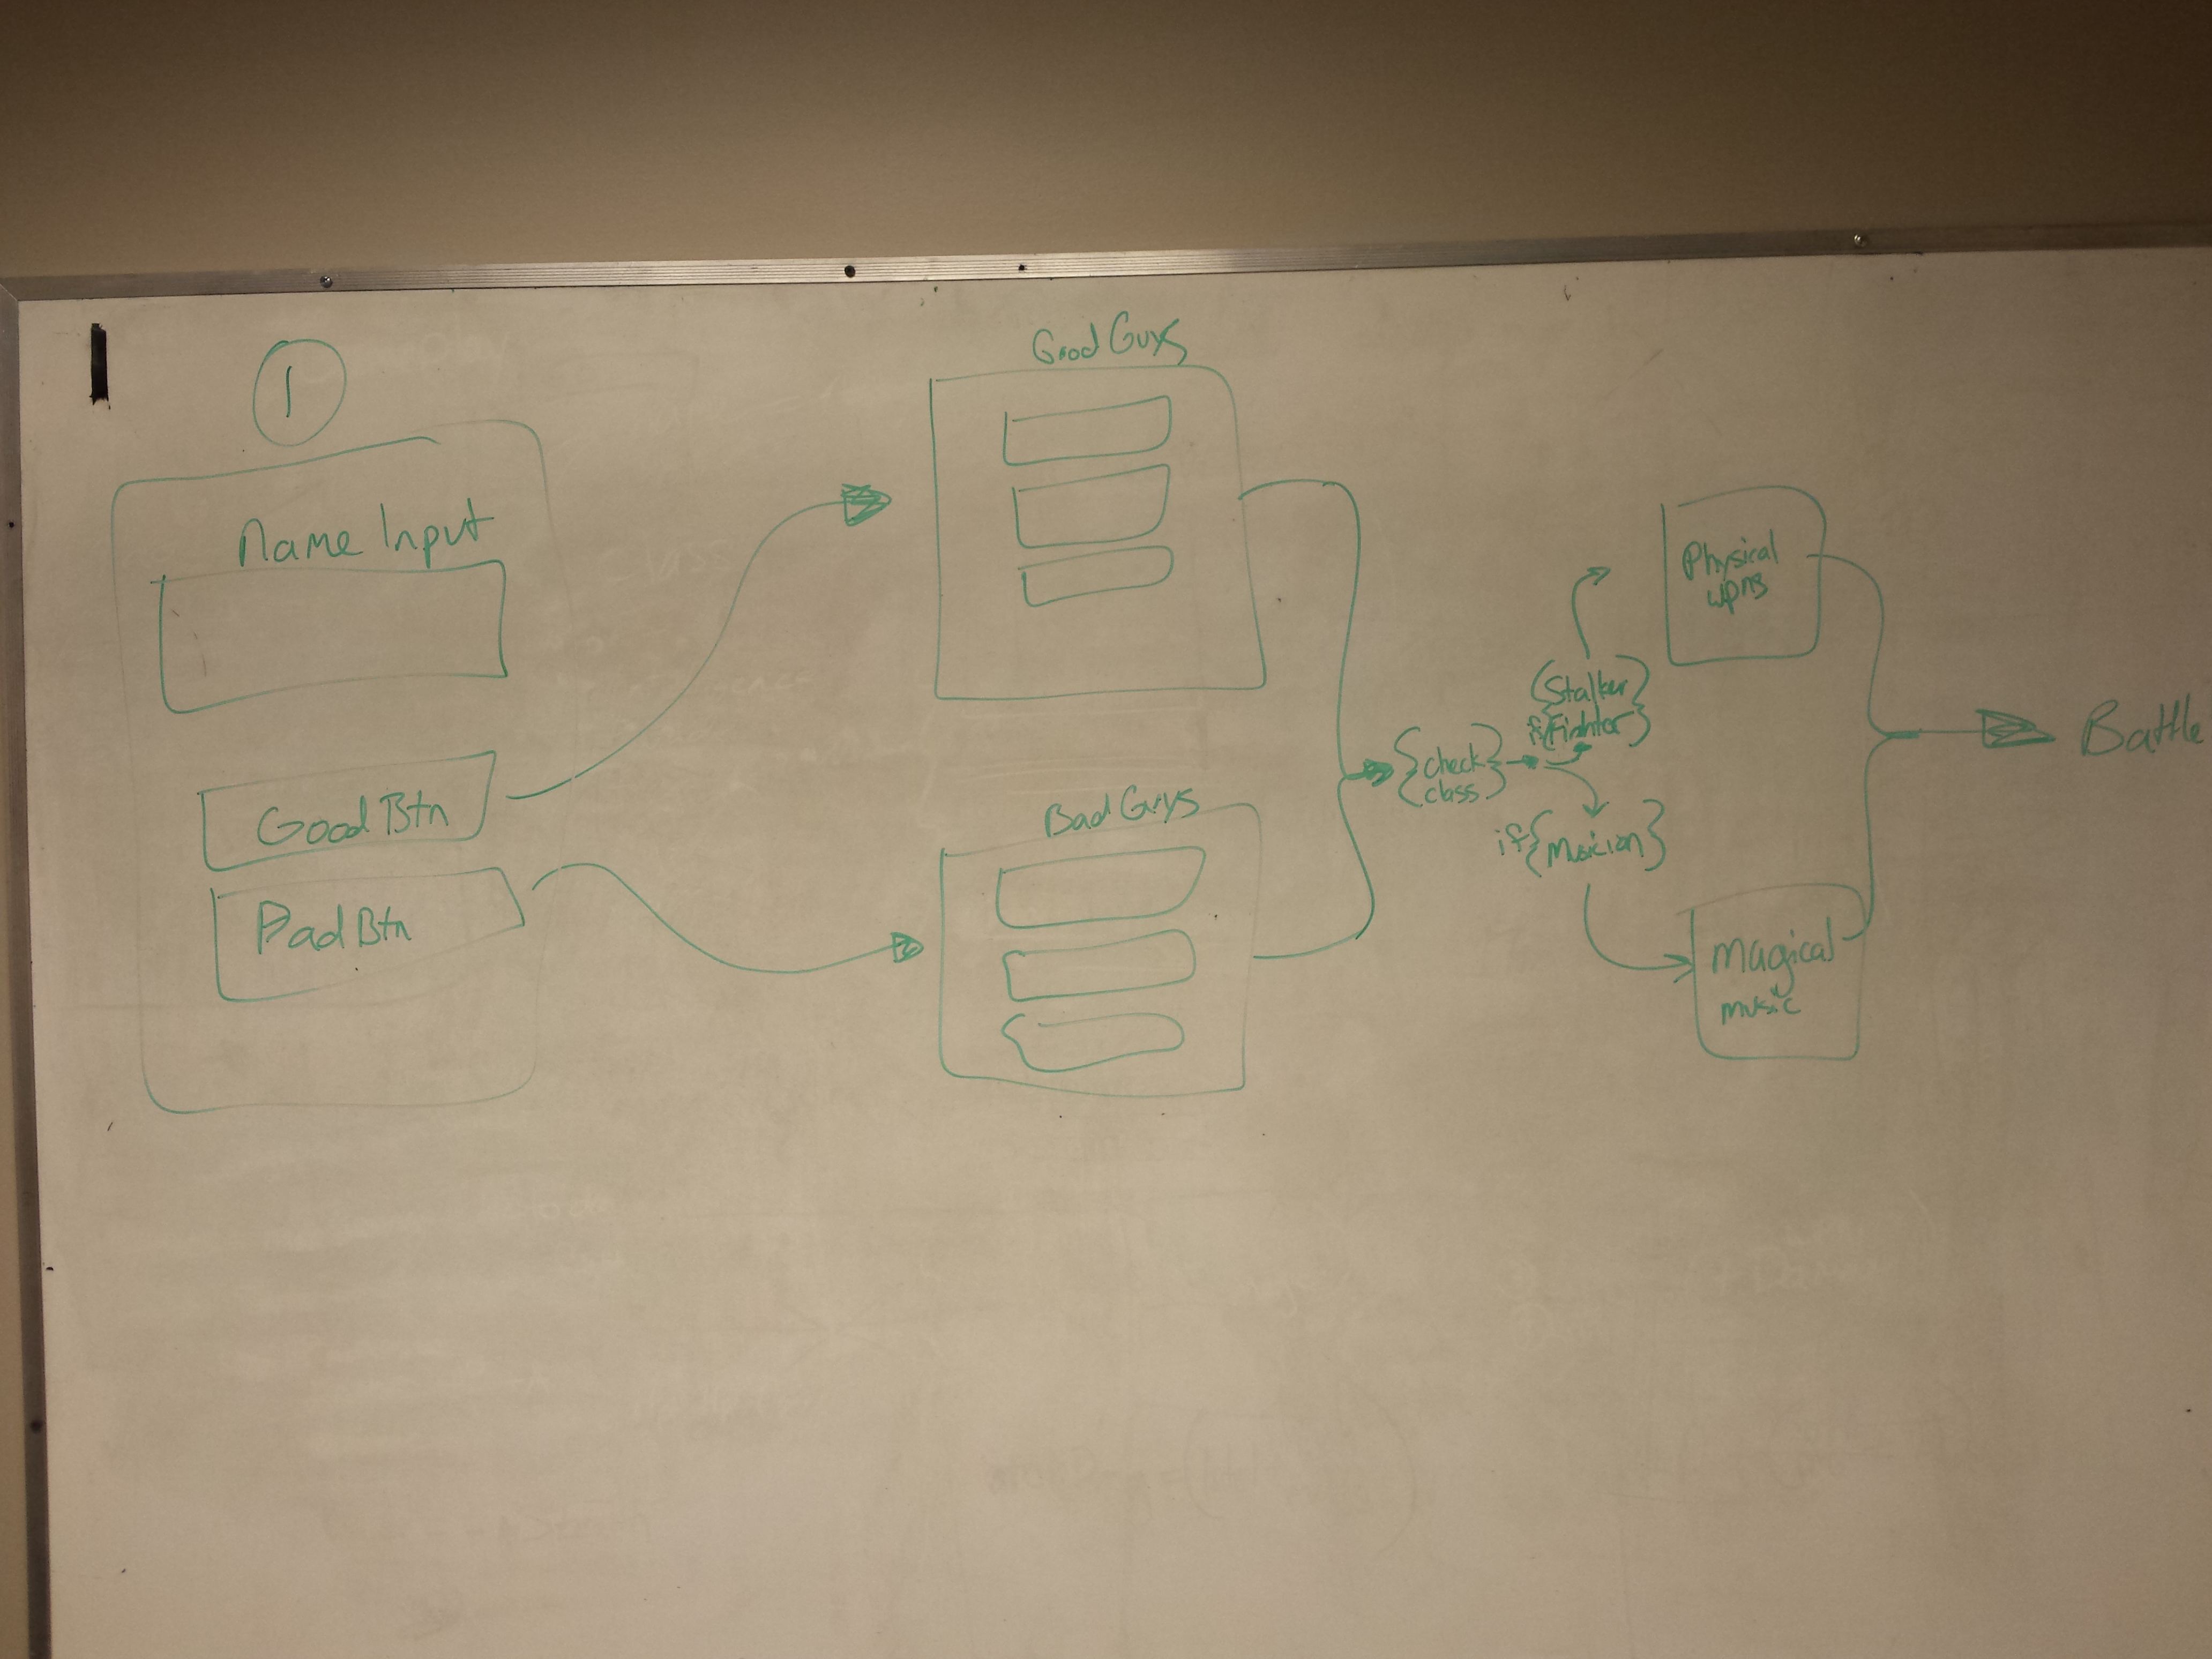 1
Name Input
Good Btn
Bad Btn
Good Guys
Bad Guys
{check
class}
{Stalker}
if{Fighter}
if{Musician}
Physical
wpns
Magical
music
Battle